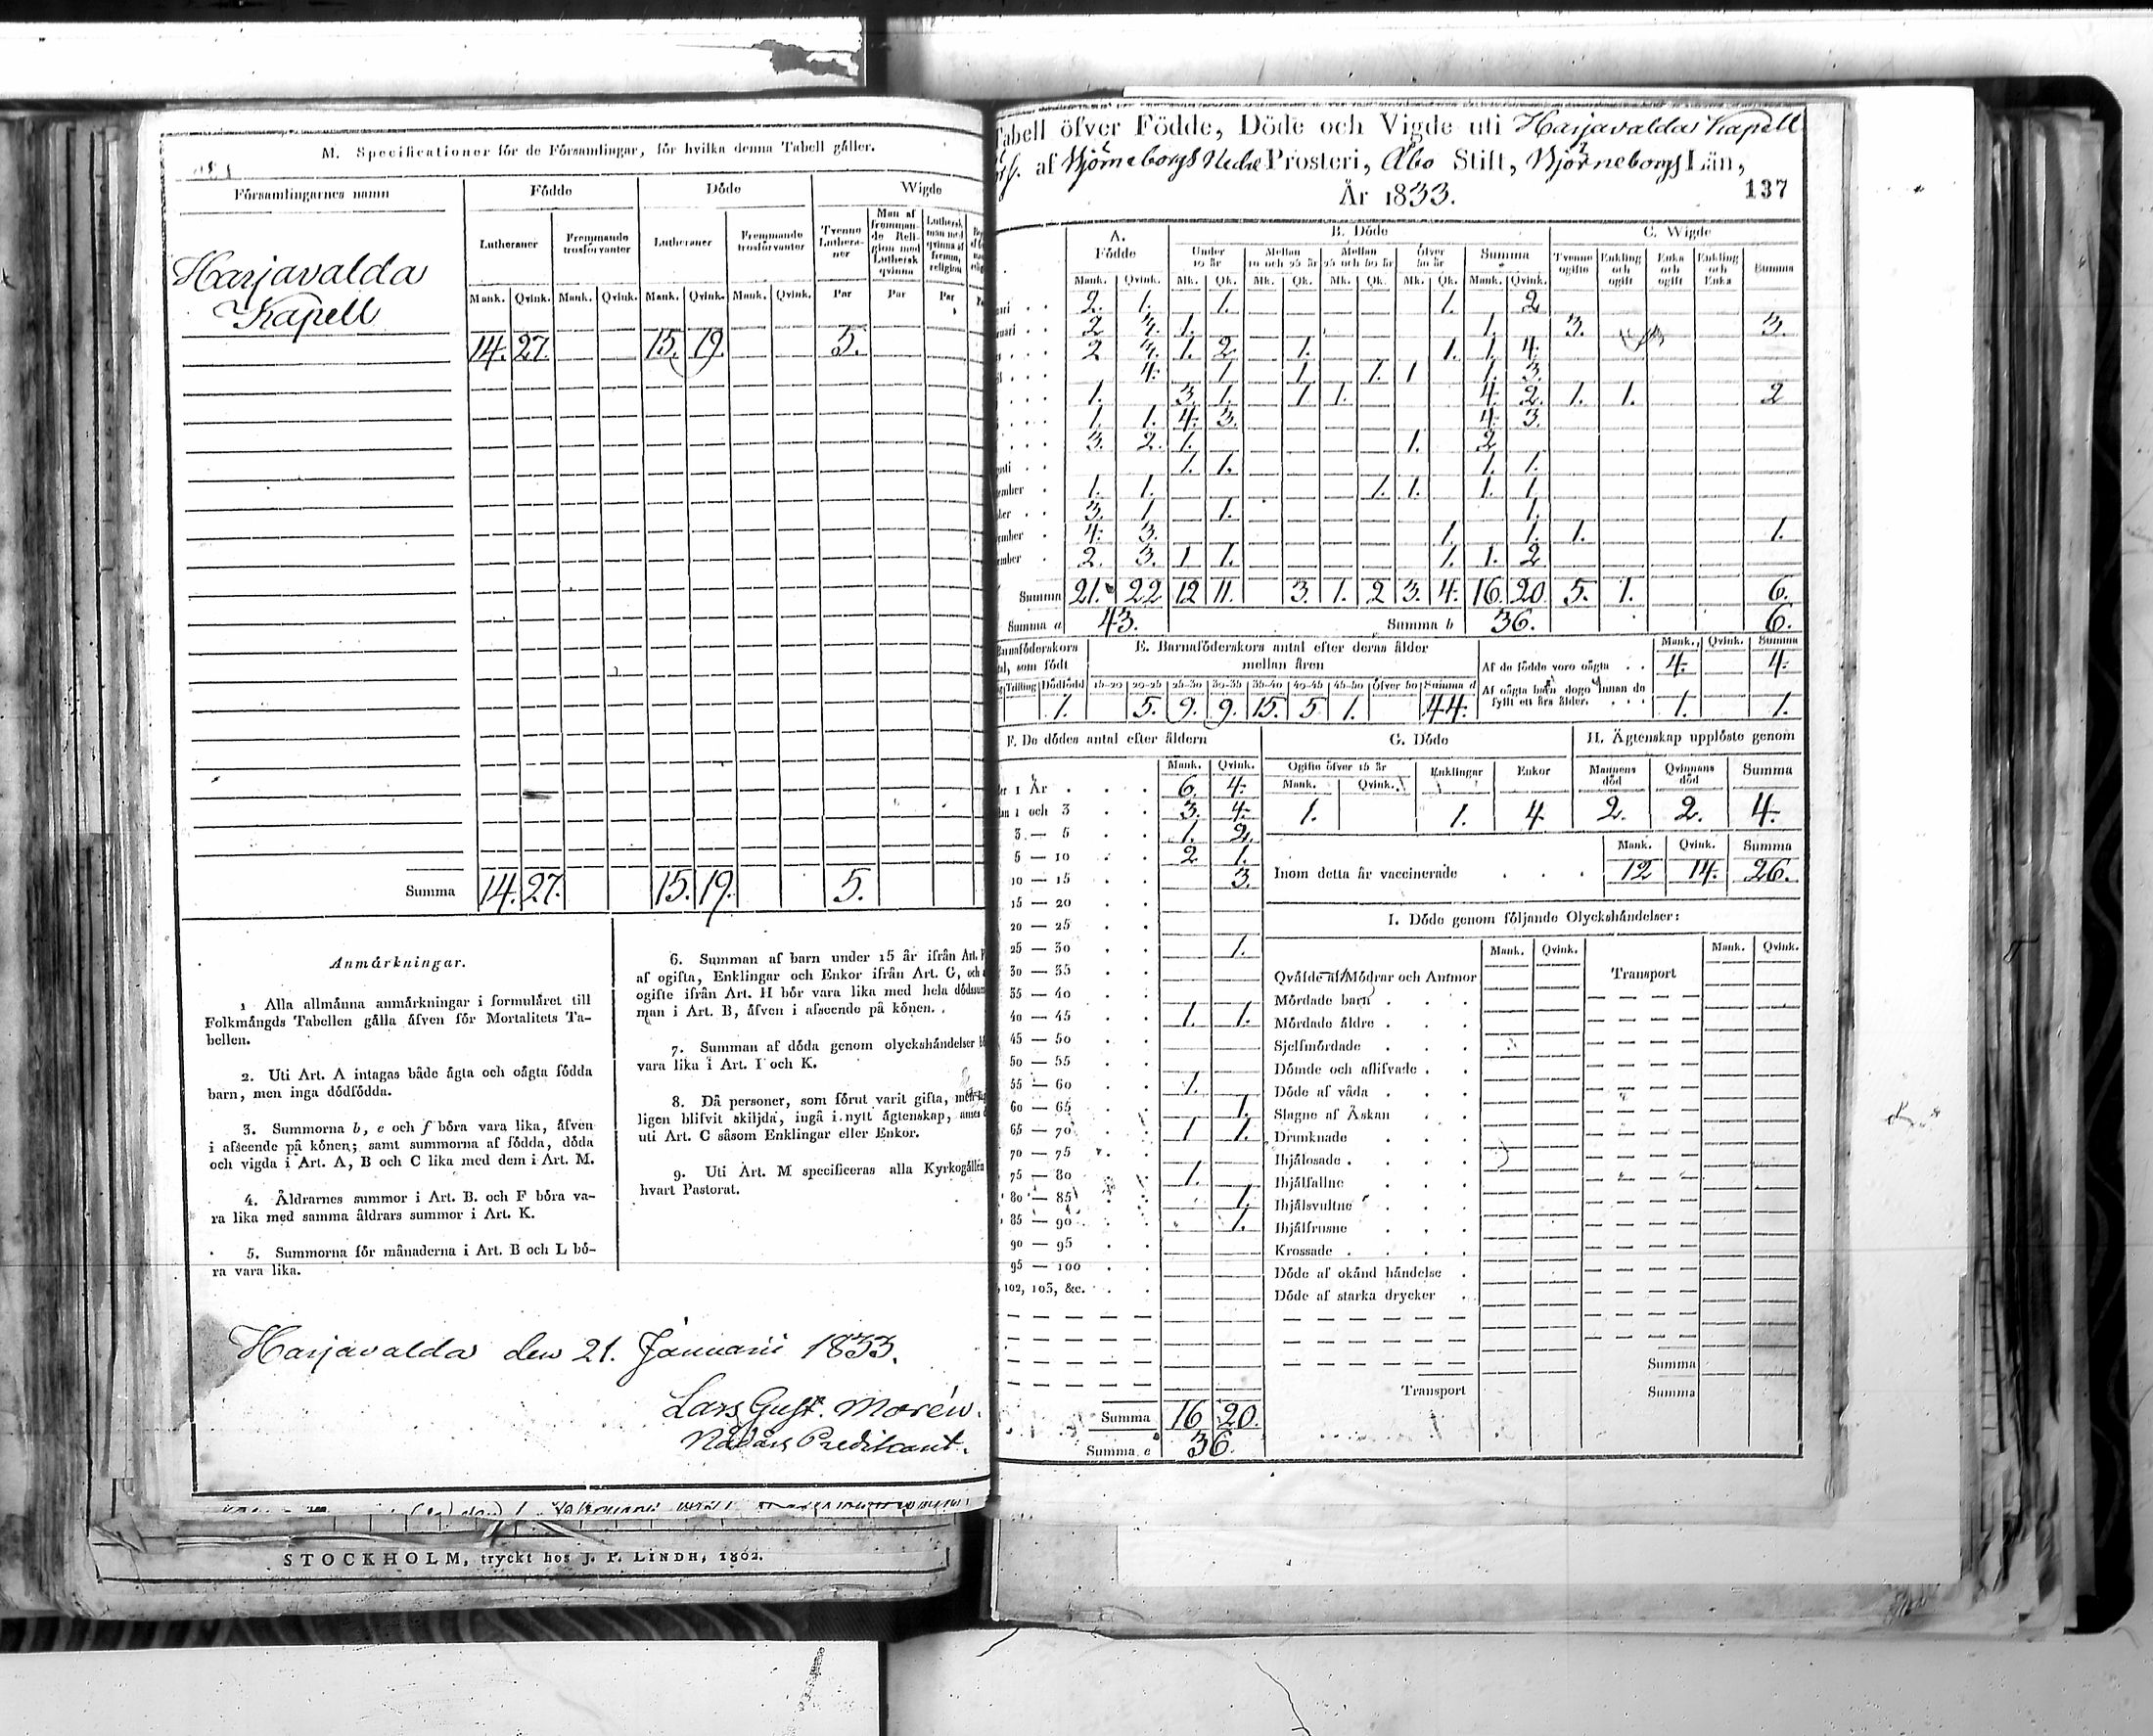 M. Specificationer för de Församlingar, för hvilka denna Tabell gäller.
Församlingarnes namn Födde Döde Wigde
Lutheraner Fremmande trosförvanter Lutheraner Fremmande trosförvanter Tvenne Lutheraner Man af fremmande Religion med Luthersk qvinna Luthersk man med qvinna af fremm. religion
Mank. Qvink. Mank. Qvink. Mank. Qvink. Mank. Qvink. Par Par Par
Harjavalda
Kapell
14. 27. 15. 19. 5.
Summa 14. 27. 15. 19. 5.
Anmärkningar.
1 Alla allmänna anmärkningar i formuläret till
Folkmängds Tabellen gälla äfven för Mortalitets Ta-
bellen.
2. Uti Art. A intagas både ägta och oägta födda
barn, men inga dödfödda.
3. Summorna b, e och f böra vara lika, äfven
i afseende på könen; samt summorna af födda, döda
och vigda i Art. A, B och C lika med dem i Art. M.
4. Åldrarnes summor i Art. B. och F böra va-
ra lika med samma åldrars summor i Art. K.
5. Summorna för månaderna i Art. B och L bö-
ra vara lika.
6. Summan af barn under 15 år ifrån Art.
af ogifta, Enklingar och Enkor ifrån Art. G, och
ogifte ifrån Art. H bör vara lika med hela
man i Art. B, äfven i afseende på könen.
7. Summan af döda genom olyckshändelser
vara lika i Art. I och K.
8. Då personer, som förut varit gifta,
ligen blifvit skiljda, ingå i nytt ägtenskap,
uti Art. C såsom Enklingar eller Enkor.
9. Uti Art. M specificeras alla Kyrkogällen
hvart Pastorat.
Harjavalda den 21. Januarii 1833.
Lars Gust. Morén.
Nådårs Predikant.
STOCKHOLM, tryckt hos J. P. LINDH, 1802.
Tabell öfver Födde, Döde och Vigde uti Harjavalda Kapell
af Björneborgs Nedre Prosteri, Åbo Stift, Björneborgs Län,
År 1833. 137
A. Födde B. Döde C. Wigde
Under 10 år Mellan 10 och 25 år Mellan 25 och 50 år öfver 50 år Summa Tvenne ogifte Enkling och ogift Enka och ogift Enkling och Enka Summa
Mank. Qvink. Mk. Qk. Mk. Qk. Mk. Qk. Mk. Qk. Mank. Qvink.
2. 1. 1. 1. 2
2 1. 1. 3. 3.
2 1. 2 1. 1. 1. 4.
4. 1. 1. 1. 1 1. 3.
1. 3. 1. 1 1. 4. 2. 1. 1. 2
1. 1. 4. 3. 4. 3.
3. 2. 1. 1. 2
1. 1. 1. 1.
1. 1. 1. 1. 1. 1.
3. 1 1. 1.
4. 3. 1. 1. 1. 1.
2. 3. 1 1. 1. 1. 2
Summa 21. 22 12 11. 3. 1. 2 3. 4. 16. 20. 5. 1. 6.
Summa a 43. Summa b 36. 6.
Barnaföderskors E. Barnaföderskors antal efter deras ålder
som födt mellan åren
Trilling Dödfödd 15-20 20-25 25-30 30-35 35-40 40-45 45-50 öfver 50 Summa d
1. 5. 9. 9. 15. 5 1. 44.
Mank. Qvink. Summa
Af de födde voro oägta 4. 4.
Af oägta barn dogo innan de
fyllt ett års ålder. 1. 1.
F. De dödes antal efter åldern
Mank. Qvink.
1 År 6. 4.
1 och 3 3. 4.
3 — 5 1. 2.
5 — 10 2 1.
10 — 15 3.
15 — 20
20 — 25
25 — 30 1.
30 — 35
35 — 40
40 — 45 1. 1.
45 — 50
50 — 55
55 — 60 1.
60 — 65 1.
65 — 70 1 1.
70 — 75
75 — 80 1.
80 — 85 1.
85 — 90 1.
90 — 95
95 — 100
102, 103, &c.
Summa 16 20.
Summa e 36.
G. Döde
Ogifte öfver 15 år Enklingar Enkor
Mank. Qvink.
1. 1. 4
H. Ägtenskap upplöste genom
Mannens död Qvinnans död Summa
2. 2. 4.
Mank. Qvink. Summa
Inom detta år vaccinerade 12 14. 26.
I. Döde genom följande Olyckshändelser:
Mank. Qvink. Mank. Qvink.
Qväfde af Mödrar och Ammor Transport
Mördade barn
Mördade äldre
Sjelfmördade
Dömde och aflifvade
Döde af våda
Slagne af Åskan
Drunknade
Ihjälosade
Ihjälfallne
Ihjälsvultne
Ihjälfrusne
Krossade
Döde af okänd händelse
Döde af starka drycker
Summa
Transport Summa